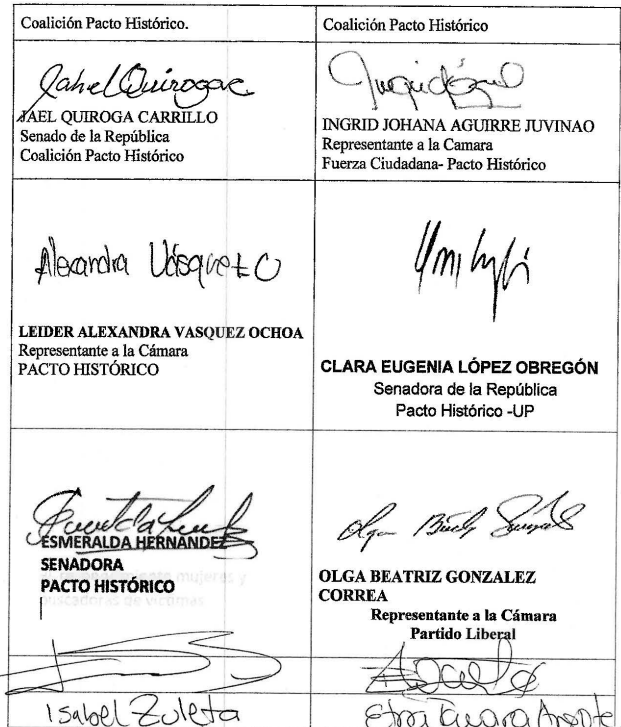 Coalición Pacto Histórico.
Coalición Pacto Histórico
Jahel Quiroga C
JAEL QUIROGA CARRILLO
Senado de la República
Coalición Pacto Histórico
INGRID JOHANA AGUIRRE JUVINAO
Representante a la Camara
Fuerza Ciudadana- Pacto Histórico
Alexandra Vásquez O
LEIDER ALEXANDRA VASQUEZ OCHOA
Representante a la Cámara
PACTO HISTÓRICO
CLARA EUGENIA LÓPEZ OBREGÓN
Senadora de la República
Pacto Histórico -UP
ESMERALDA HERNANDEZ
SENADORA
PACTO HISTÓRICO
mujeres y
buscadoras de víctimas
Olga
OLGA BEATRIZ GONZALEZ
CORREA
Representante a la Cámara
Partido Liberal
Isabel Zuleta